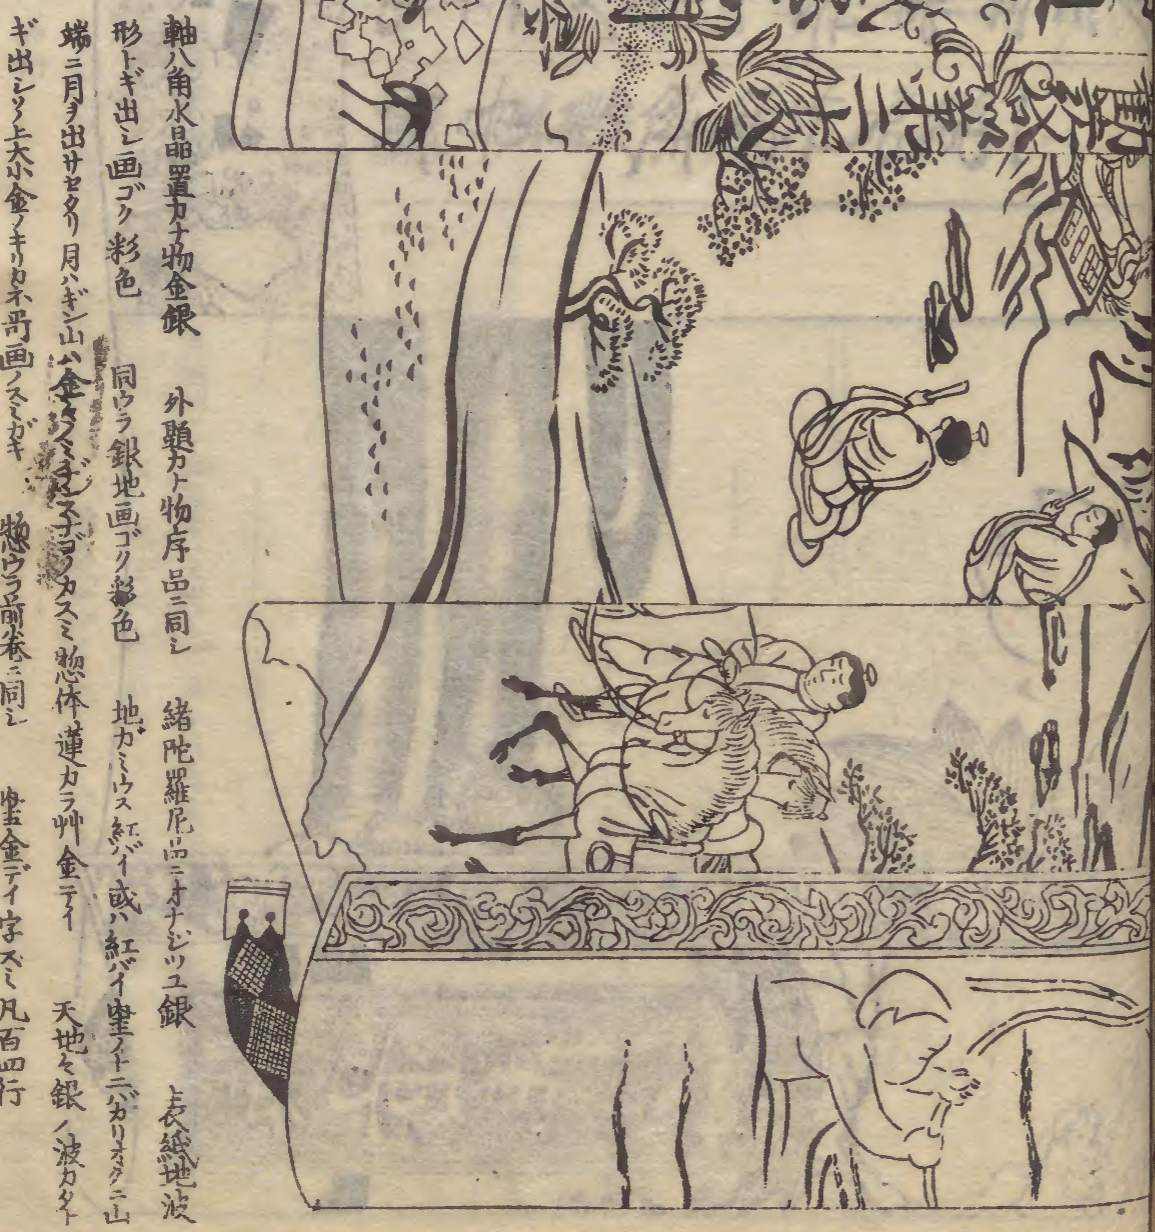 軸八角水晶置カナ物金銀　外題カナ物序品ニ同シ　緒陀羅尼品ニオナジツユ銀　上表紙地波
形トギ出シ画ゴク彩色　同ウラ銀地画ゴク彩色　地カミウス紅バイ或ハ紅バイ　ノ十二バカリオクニ山
端ニ月ヲ出サセタリ月ハギン山ハ金　カスミ惣体蓮カラ艸金デイ　天地々銀ノ波カタト
ギ出シソノ上大小金ノキリカネ　画ノスミガキ　惣ウラ前巻ニ同シ　金デイ字スミ凡百四行
勸發 第二十